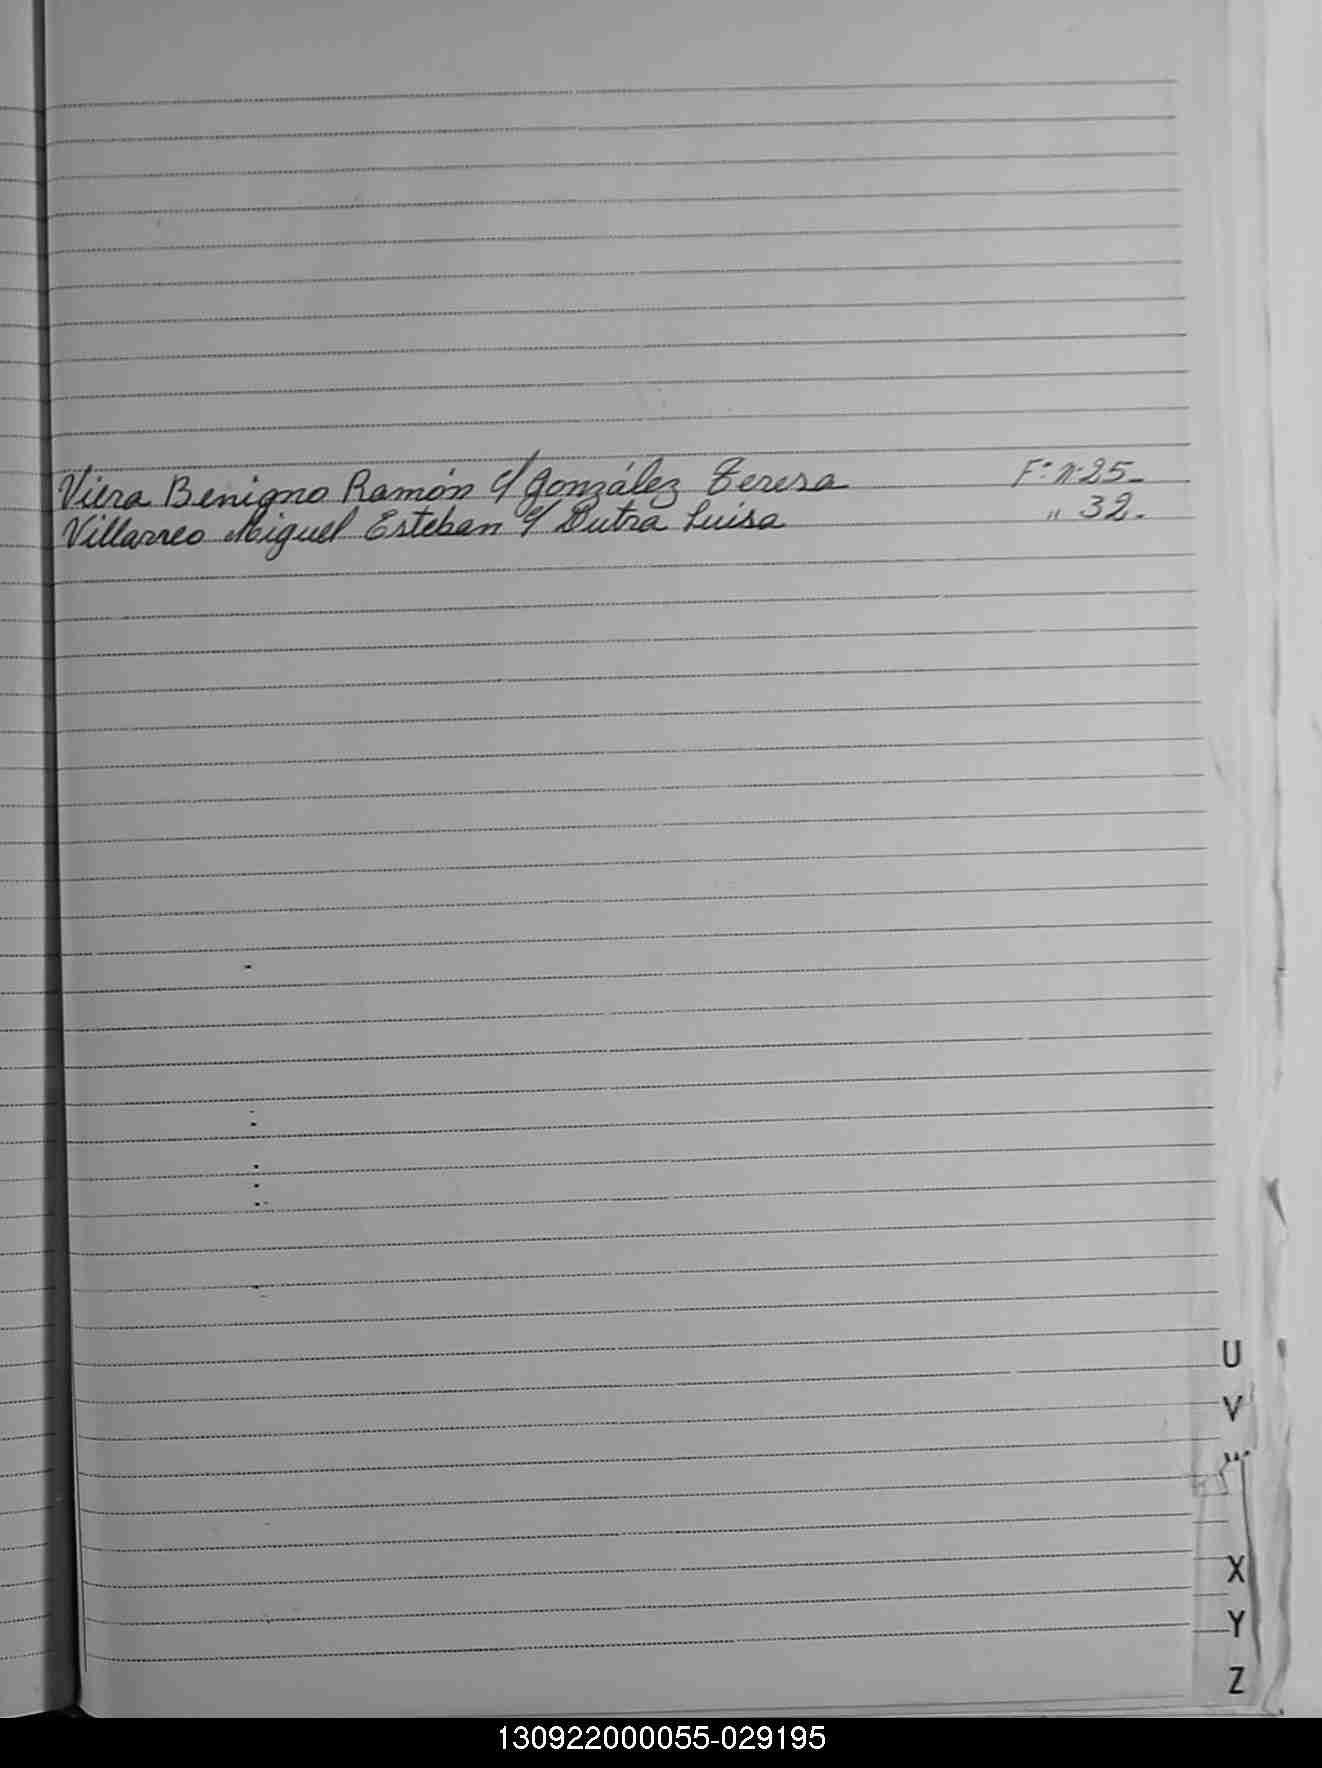 Viera Benigno Ramón c/ González Teresa F: n: 25_
Villarreo Miguel Esteban c/ Dutra Luisa " 32.
U
V
W
X
Y
Z
130922000055-029195